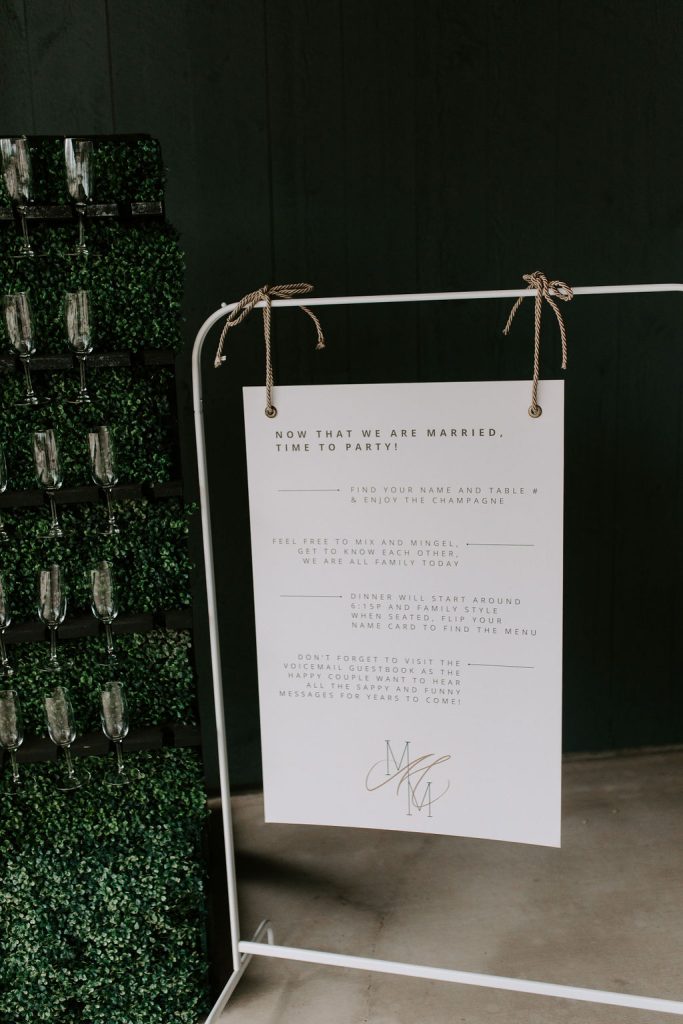 NOW THAT WE ARE MARRIED,
TIME TO PARTY!
FIND YOUR NAME AND TABLE #
& ENJOY THE CHAMPAGNE
FEEL FREE TO MIX AND MINGEL,
GET TO KNOW EACH OTHER,
WE ARE ALL FAMILY TODAY
DINNER WILL START AROUND
6:15P AND FAMILY STYLE
WHEN SEATED, FLIP YOUR
NAME CARD TO FIND THE MENU
DON'T FORGET TO VISIT THE
VOICEMAIL GUESTBOOK AS THE
HAPPY COUPLE WANT TO HEAR
ALL THE SAPPY AND FUNNY
MESSAGES FOR YEARS TO COME!
M
M
M